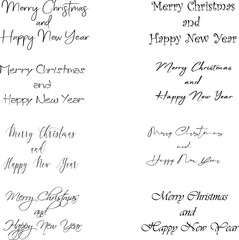 Merry Christmas
and
Happy New Year
Merry Christmas
and
Happy New Year
Merry Christmas
and
Happy New Year
Merry Christmas
and
Happy New Year
Merry Christmas
and
Happy New Year
Merry Christmas
and
Happy New Year
Merry Christmas
and
Happy New Year
Merry Christmas
and
Happy New Year